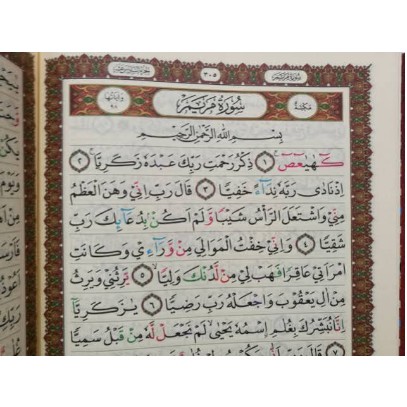 سورة مريم
٣٠٥
سورة مريم
مكية
بسم الله الرحمن الرحيم
كهيعص ١ ذكر رحمت ربك عبده زكريا ٢
إذ نادى ربه نداء خفيا ٣ قال رب إني وهن العظم
مني واشتعل الرأس شيبا ولم أكن بدعائك رب
شقيا ٤ وإني خفت الموالي من وراءي وكانت
امرأتي عاقرا فهب لي من لدنك وليا ٥ يرثني ويرث
من آل يعقوب واجعله رب رضيا ٦ يا زكريا
إنا نبشرك بغلام اسمه يحيى لم نجعل له من قبل سميا
٧ قال رب